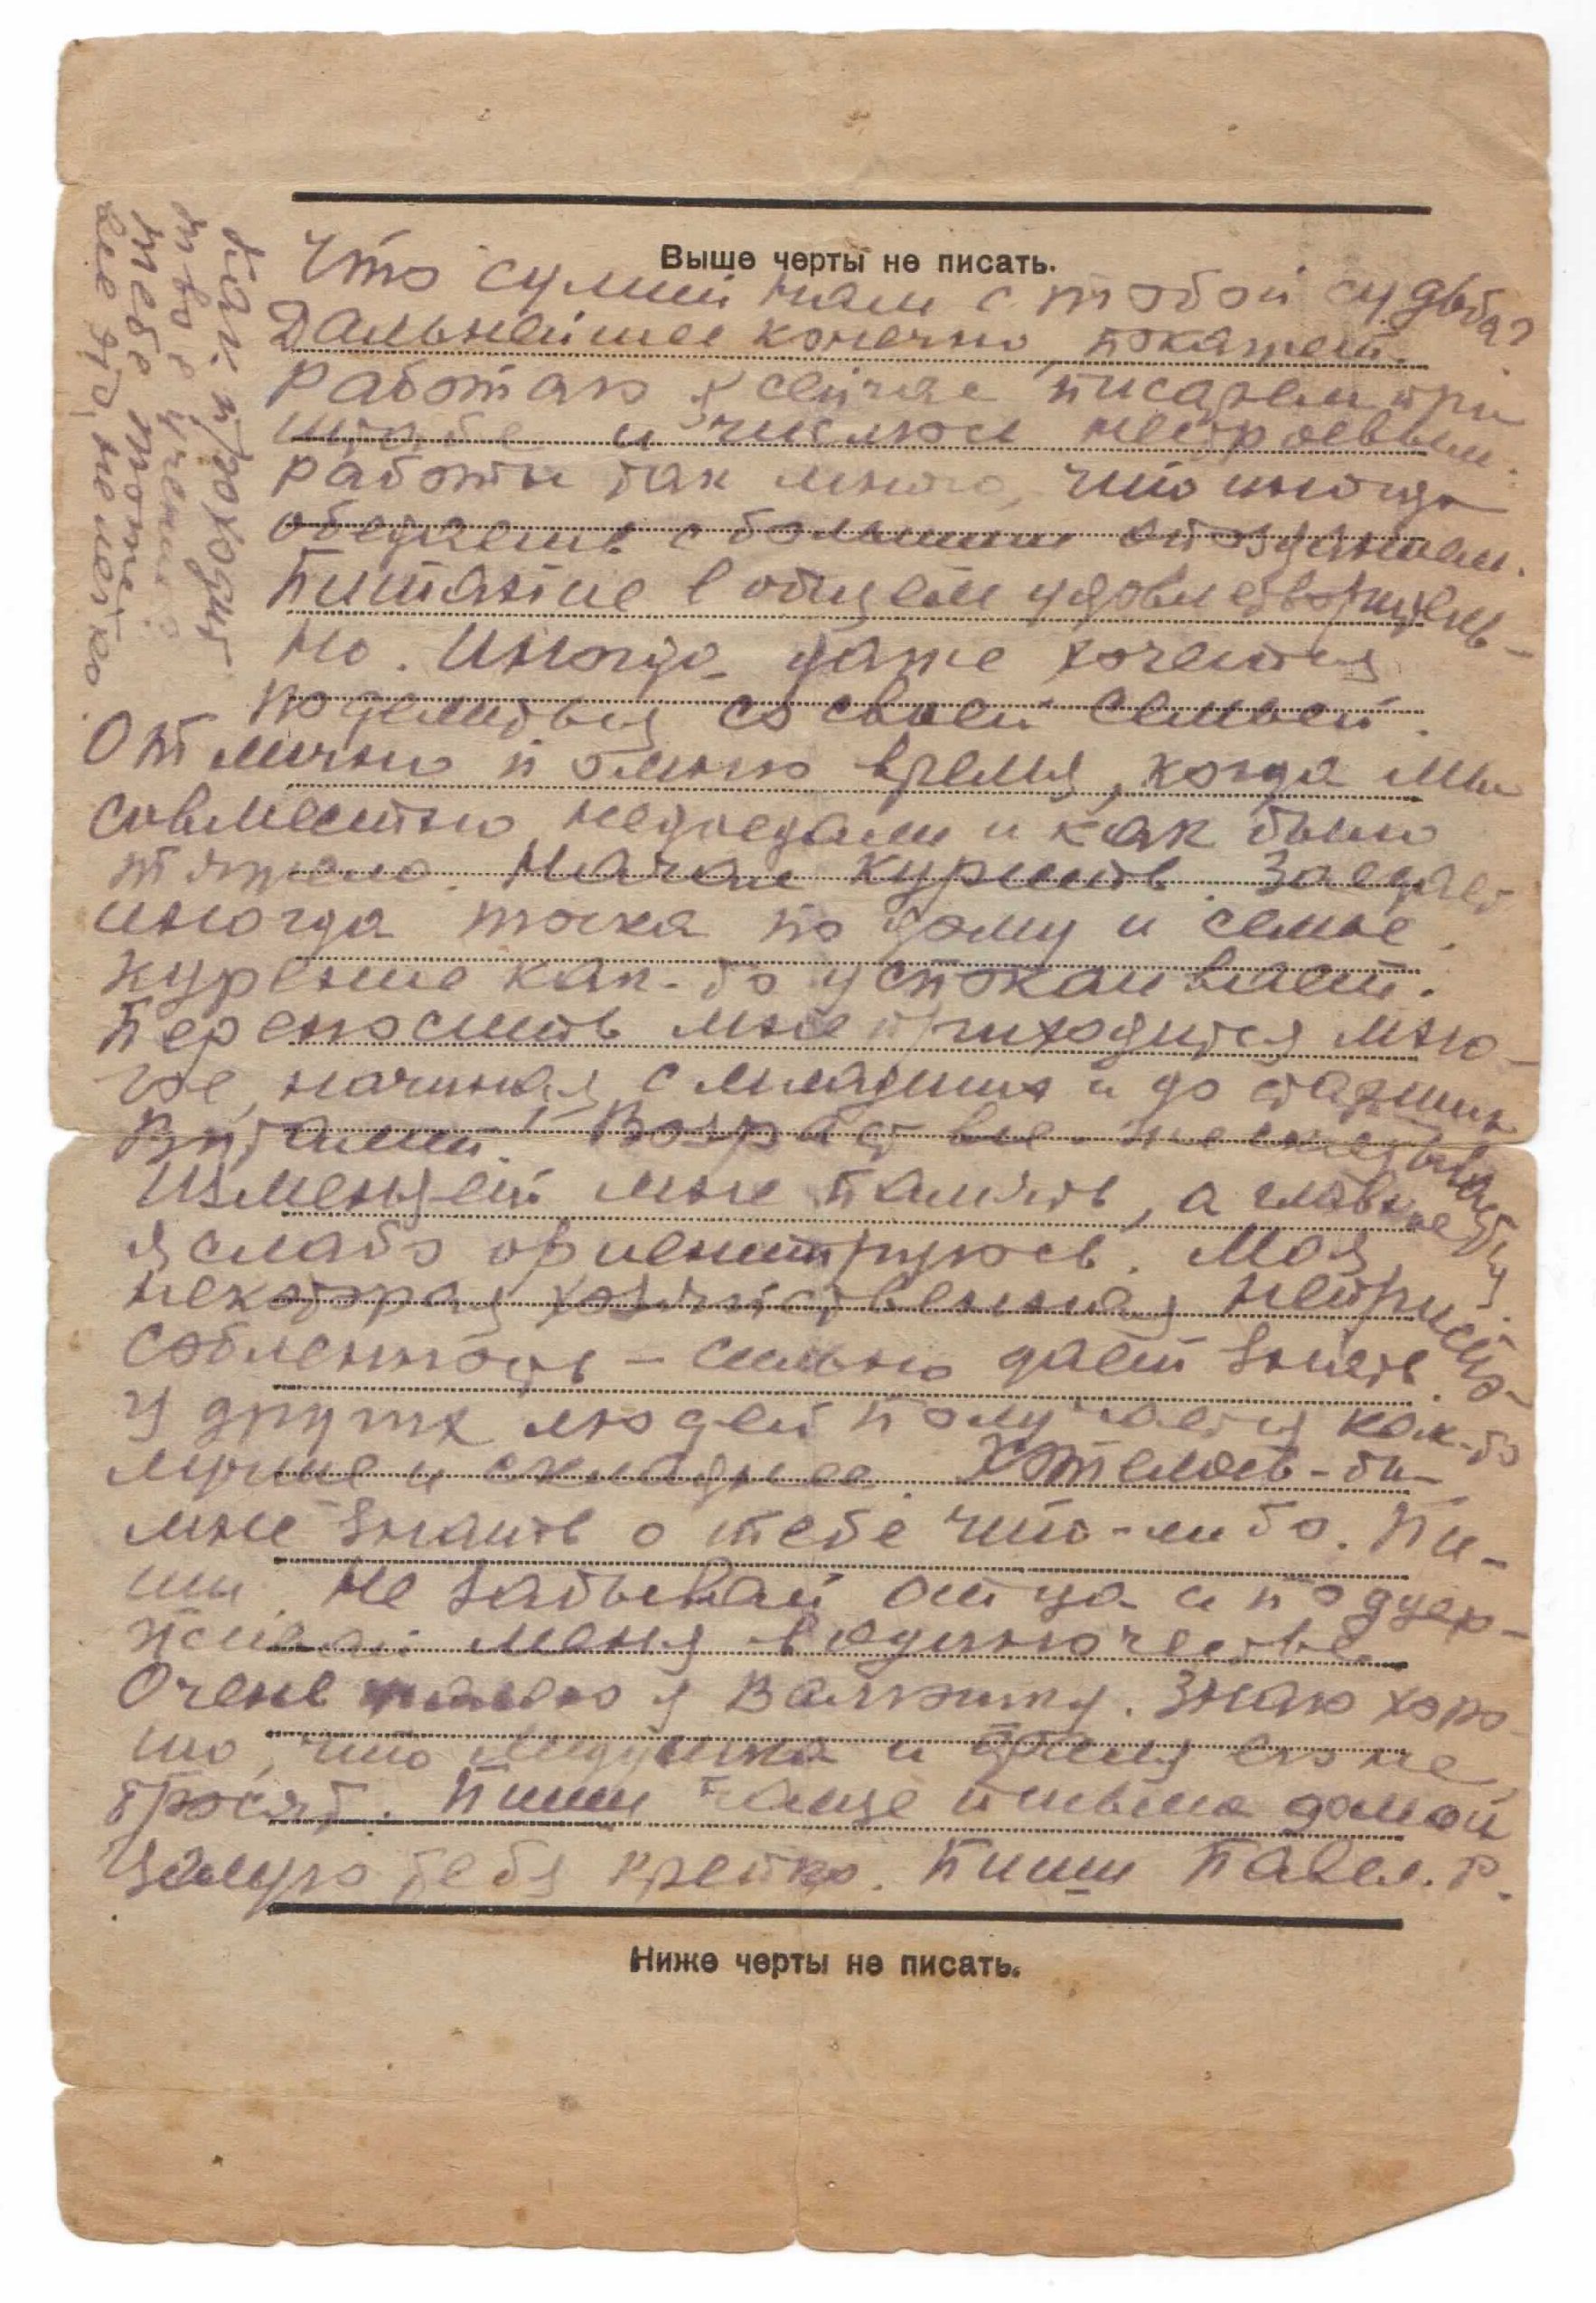 Выше черты не писать.
Что сулит нам с тобой судьба?
Дальнейшее конечно покажет.
Работаю я сейчас писарем при
штабе и числюсь нестроевым.
Работы так много, что иногда
обедаешь с большим опозданием.
Питание в общем удовлетворитель-
но. Иногда даже хочется
поделиться со своей семьей.
Отлично помню время, когда мы
совместно недоедали и как было
тяжело. Начал курить. Заедает
иногда тоска по дому и семье.
Курение как-то успокаивает.
Переносить мне приходится мно-
гое, начиная с младших и до старших
Возраст все же сказывается.
Изменяет мне память, а главное
я слабо ориентируюсь. Моя
некоторая хозяйственная неприспо-
собленность – сильно дает знать.
У других людей получается как-то
лучше и складнее. Хотелось-бы
мне знать о тебе что-либо. Пи-
ши. Не забывай отца и поддер-
живай меня в одиночестве.
Очень жалею я Валюшку. Знаю хоро-
шо, что и её не
бросят. Пиши чаще письма домой
Целую тебя крепко. Пиши Павел. Р.
Ниже черты не писать.
Как проходит
твоё учение?
Тебе тоже
не легко